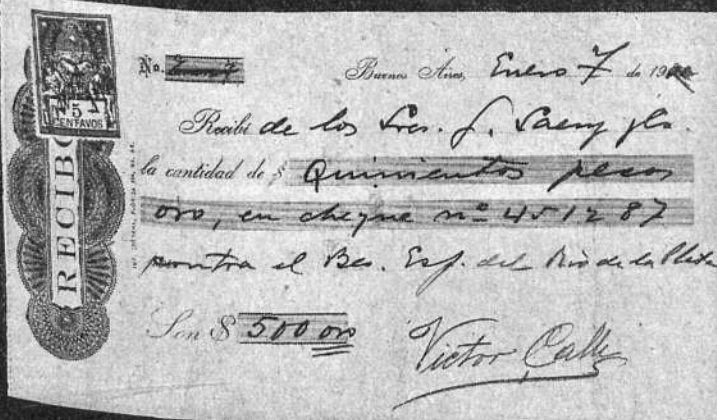 5
CENTAVOS
RECIBO
No.
Buenos Aires, Enero 7 de 19
Recibí de los Sres. J. Saenz
la cantidad de $ Quinientos pesos
oro, en cheque nº 451287
contra el Bco. Esp. del Rio de la Plata
Son $ 500 oro
Victor Calle